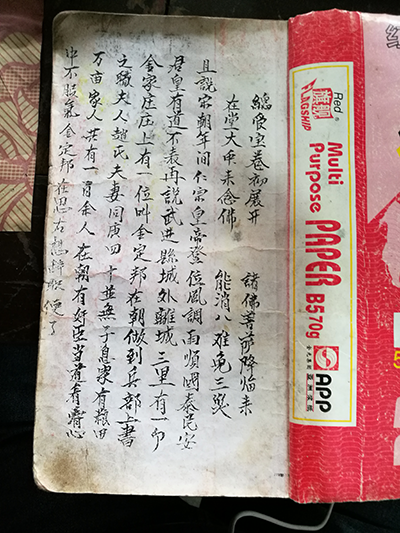 宝卷初展开 諸佛菩萨降临来
在堂大中来念佛 能消八难免三災
且説宋朝年间仁宗皇帝登位風調雨順國泰民安
君皇有道不表再説武進縣城外離城三里有一
金家庄庄上有一位叫金定邦在朝做到兵部上書
之職夫人趙氏夫妻同庚四十並無子息家有粮田
万亩家人共有一百余人在朝有奸臣当道有心
中不服氣金定邦左思右想辞职便了
Red
旗舰®
FLAGSHIP
Multi
Purpose PAPER B570g
APP